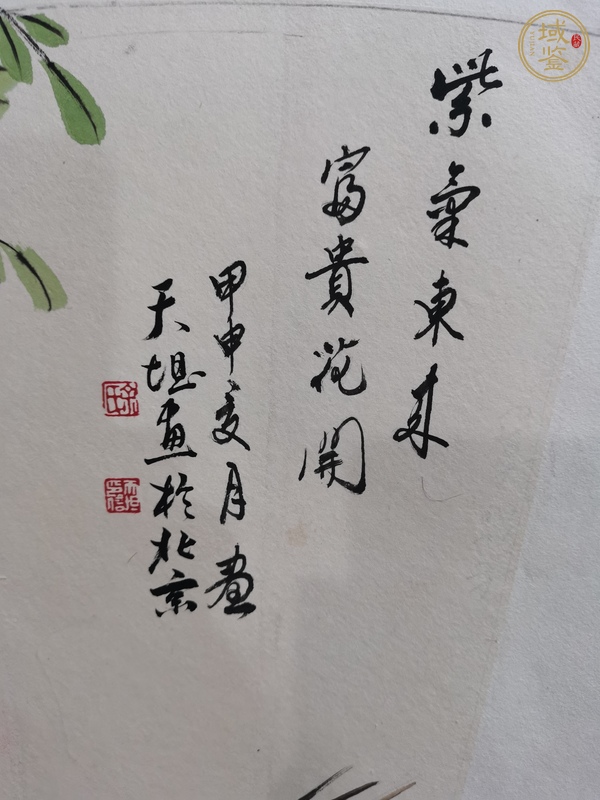 紫氣東来
富貴花開
甲申夏月畫
天坦画於北京
域鉴